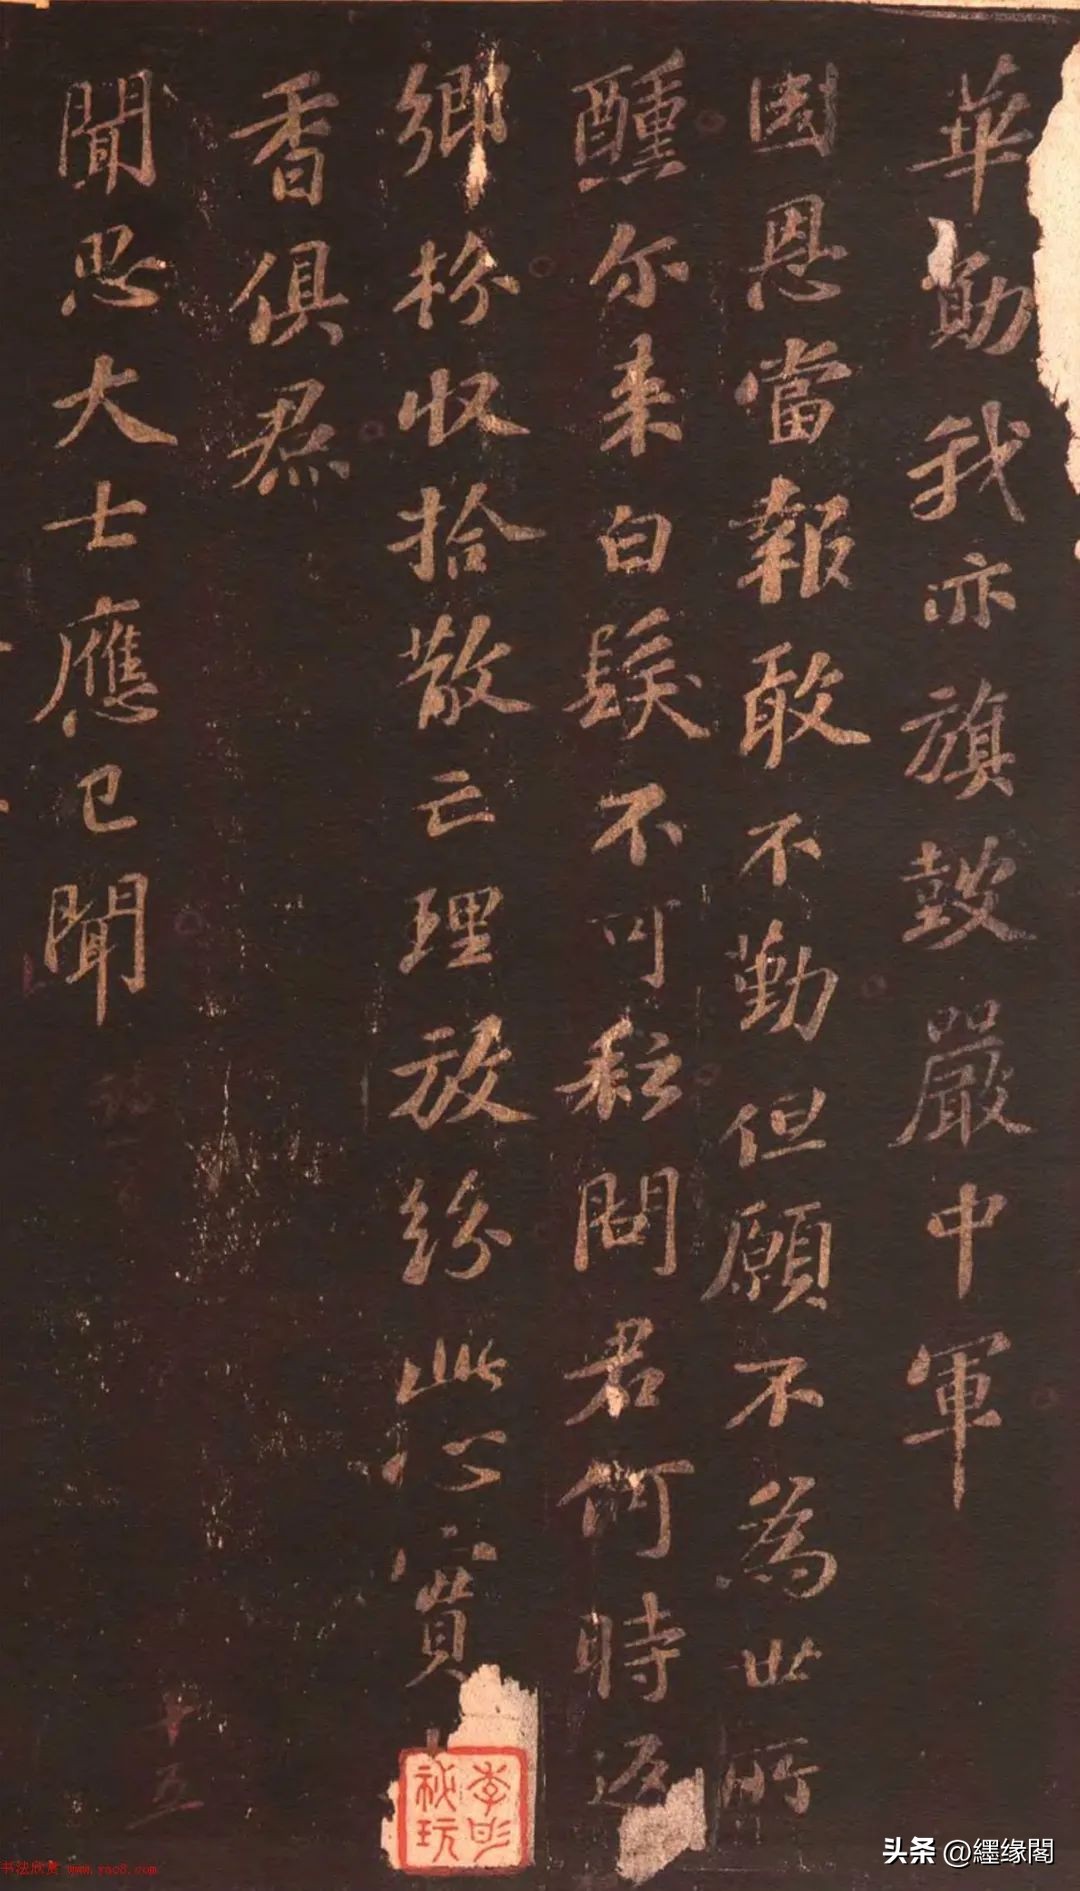 華勛我亦旗鼓嚴中軍
國恩當報敢不勤但願不為世所
醺尔来白髮不可耘問君何時返
鄉枌收拾散亡理放紛此心實
香俱君
聞思大士應已聞
十五
李 祕玩
书法欣赏 www.yac8.com
头条 @纒缘閣